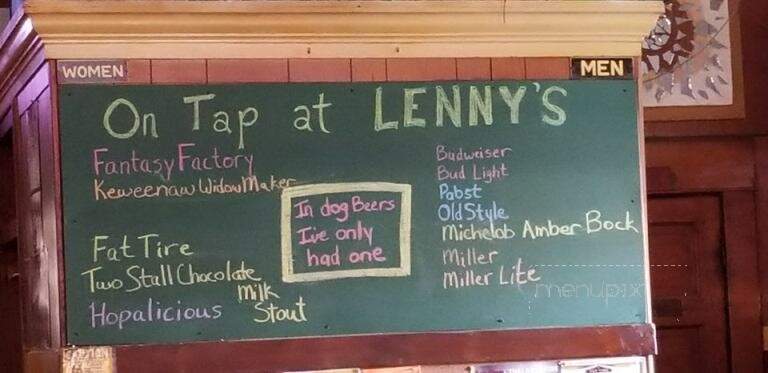 WOMEN
MEN
On Tap at LENNY'S
Fantasy Factory
Keweenaw WidowMaker
Fat Tire
Two Stall Chocolate
Milk
Stout
Hopalicious
In dog Beers
I've only
had one
Budweiser
Bud Light
Pabst
Old Style
Michelob Amber Bock
Miller
Miller Lite
menupix